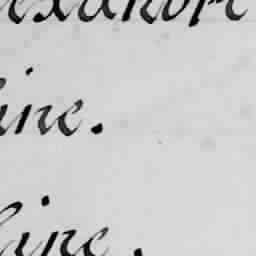 exandre
ine.
ine.